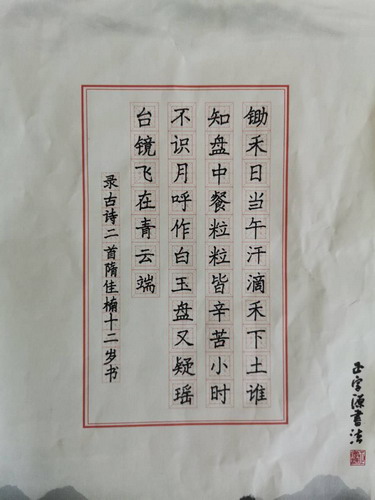 锄禾日当午汗滴禾下土谁
知盘中餐粒粒皆辛苦小时
不识月呼作白玉盘又疑瑶
台镜飞在青云端
录古诗二首隋佳楠十二岁书
正字源書法